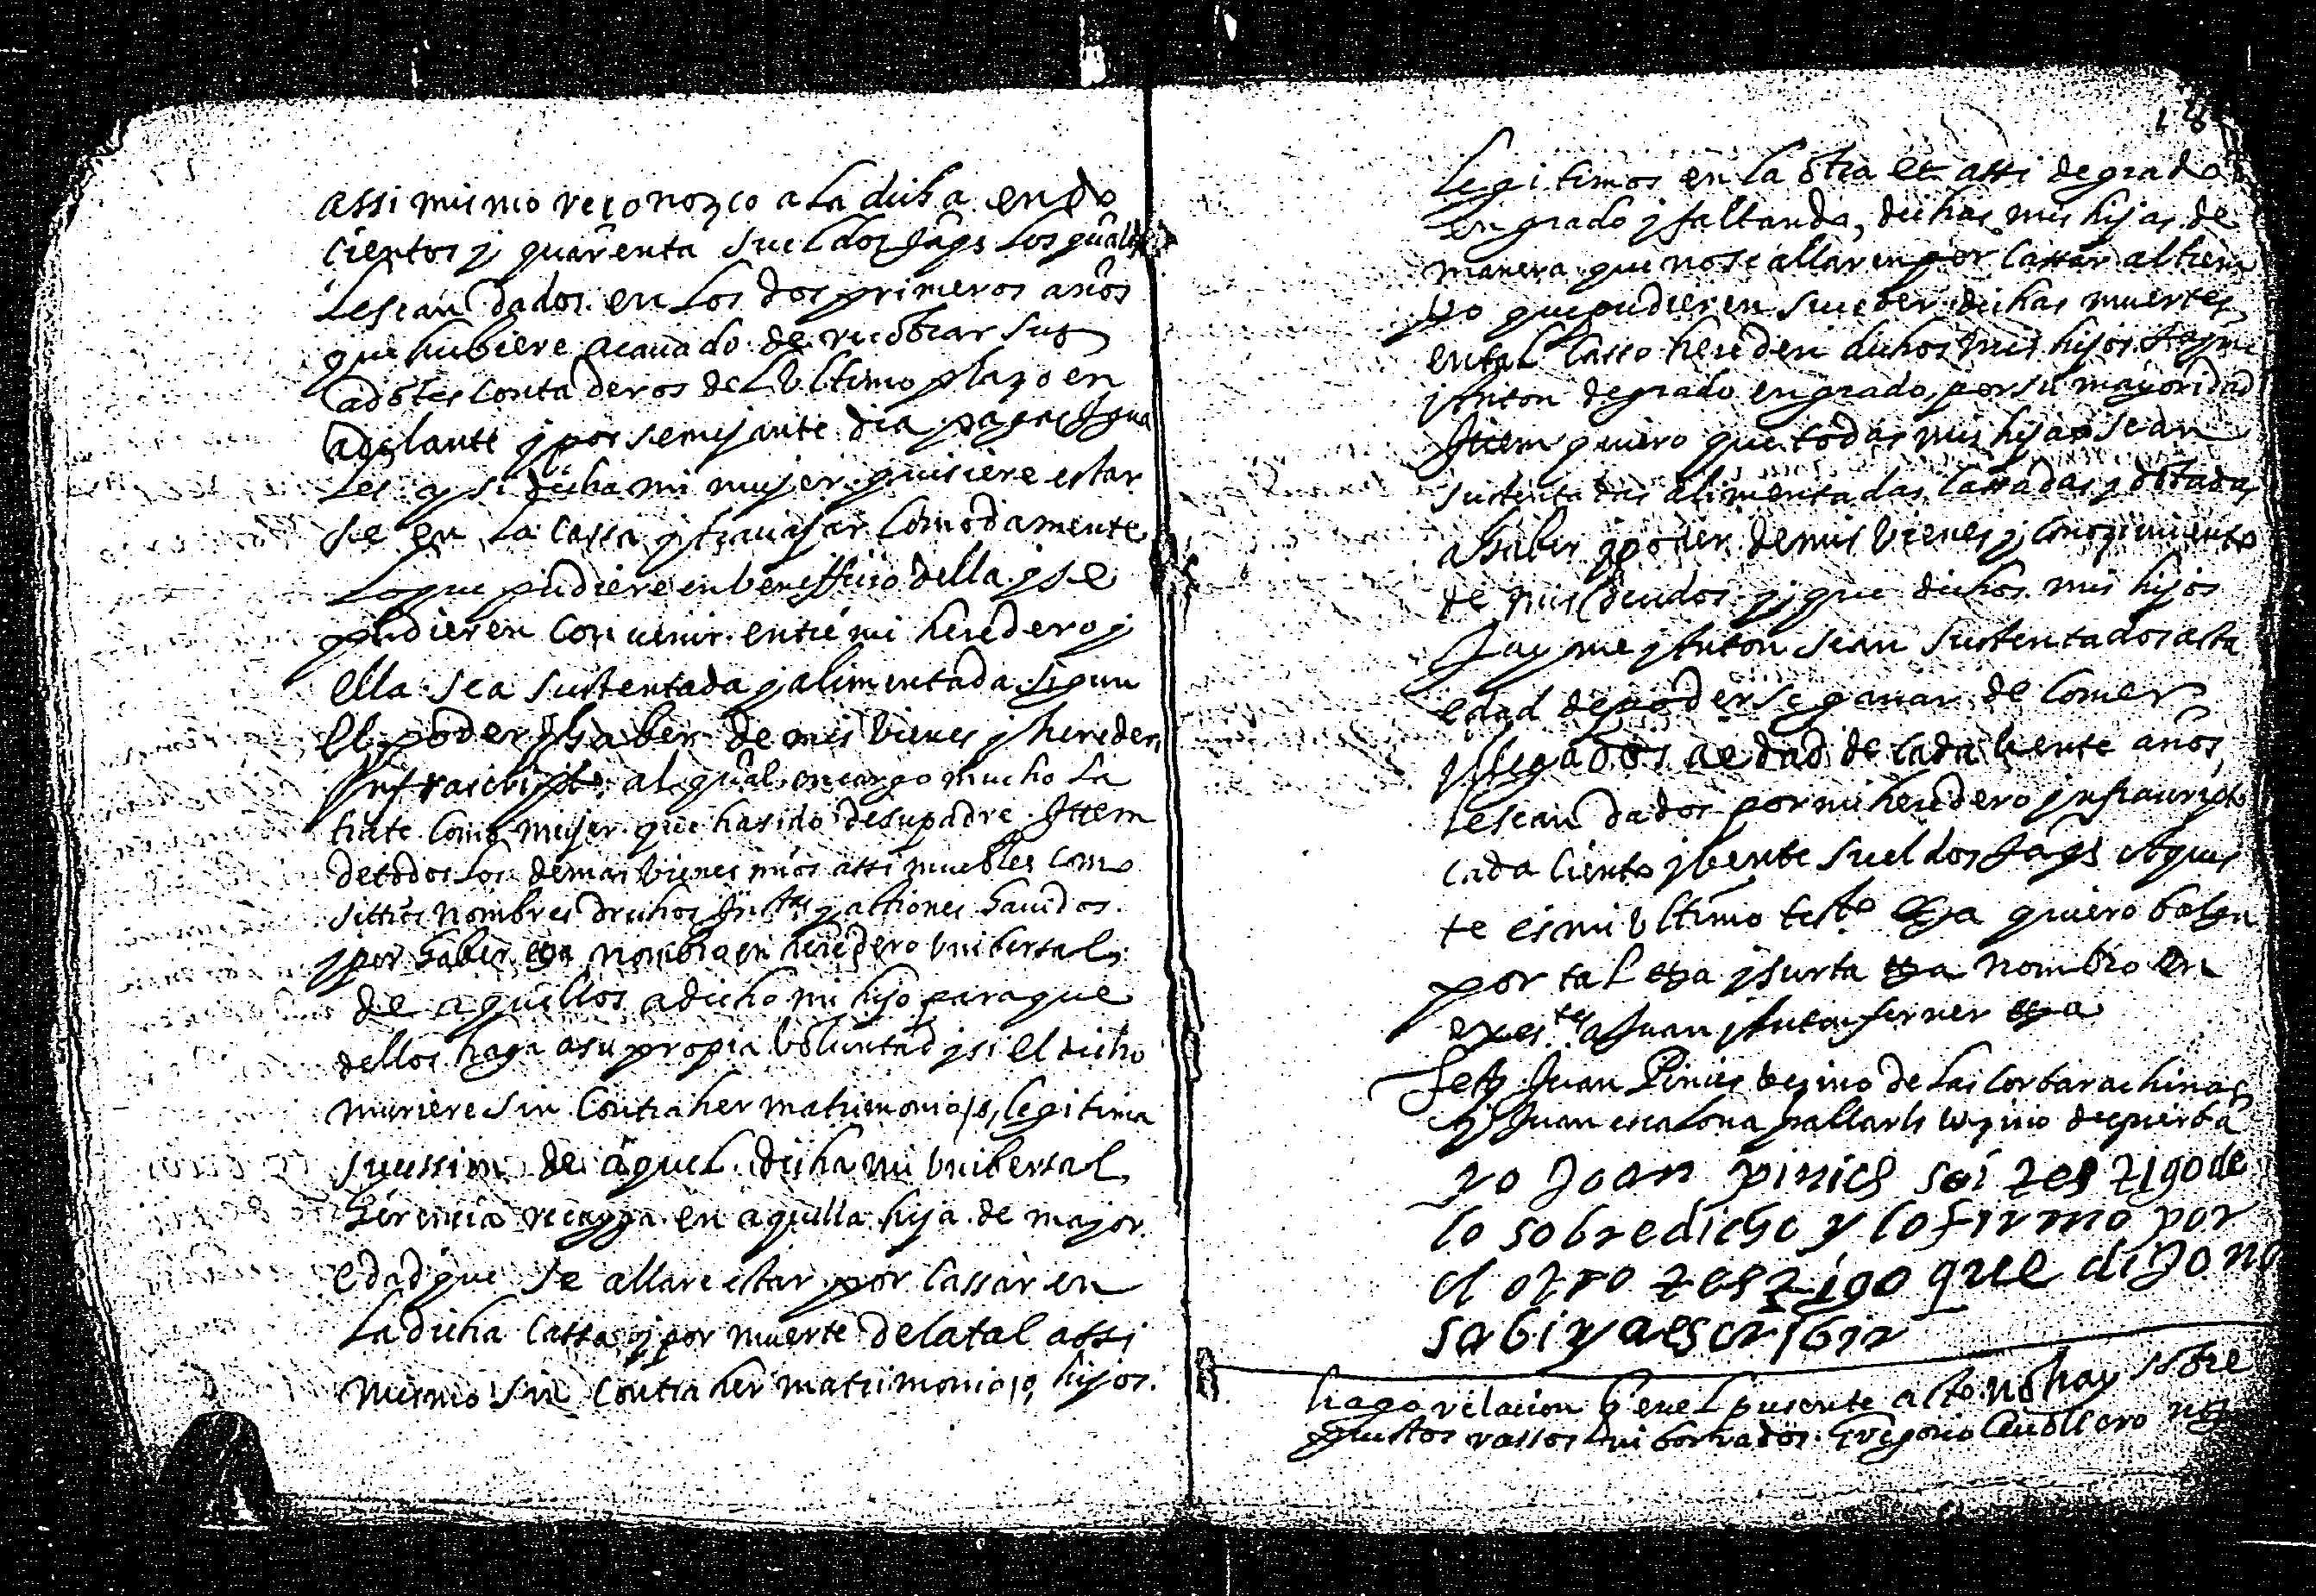 assi mismo reconozco a la dicha en do
cientos y quarenta sueldos Jaqs los quales
le sean dados en los dos primeros años
que hubiere acauado de recobrar sus
adotes contaderos del vltimo plazo en
adelante y por semejante dia pagas Igua
les y si dicha mi mujer quisiere estar
se en la cassa y trauajar comodamente
lo que pudiere en beneffiçio della y se
pudieren conuenir entre mi heredero y
ella sea sustentada y alimentada segun
el poder y haber de mis bienes y hereder
Infrascripto al qual encargo mucho la
trate como mujer que ha sido de su padre. Ittem
de todos los demas bienes mios assi muebles como
sittios nombres drechos Insttas y actiones hauidos
y por haber ettª nombro en heredero vnibersal
de aquellos a dicho mi hijo para que
dellos haga a su propia boluntad y si el dicho
muriere sin contraher matrimonio, o, legitima
sucession de aquel dicha mi vnibersal
herencia recayga en aquella hija de mayor
edad que se allare estar por cassar en
la dicha cassa y por muerte de la tal assi
mismo sin contraher matrimonio, o, hijos.
legitimos en la otra et assi de grado
en grado y faltando, dichas mis hijas de
manera que no se allaren por cassar al tiem
po que pudieren suceder dichas muertes
en tal casso hereden dichos mis hijos Jayme
y Anton de grado en grado, por su mayoridad
Ittem quiero que todas mis hijas sean
sustentadas alimentadas, cassadas y dotadas
a haber y poder de mis bienes y conozimiento
de mis deudos y que dichos mis hijos
Jayme y Anton sean sustentados asta
edad de poderse ganar de comer
y llegados a edad de cada bente años,
le sean dados por mi heredero infrascripto
cada ciento y bente sueldos Jaqs Aques
te es mi vltimo testto ettª quiero balga
por tal ettª y surta ettª nombro en
exes.tes a Juan y Anton ferrer ettª
Testes Juan Pinies bezino de las corbarachinas
y Juan escalona pallarls bezino de puerba
yo Joan pinies soi testigo de
lo sobredicho y lo firmo por
el otro testigo que dijo no
sabiya escribir
hago relacion q en el presente acto no hay sobre
puestos rassos ni borrados. Gregorio Cauallero notº